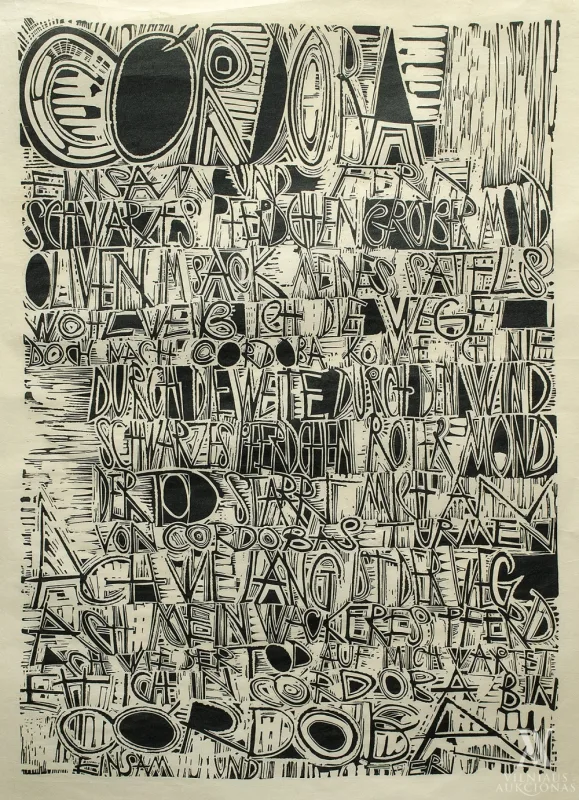 CÓRDOBA
EINSAM UND FERN
SCHWARZES PFERDCHEN GROSSER MOND
OLIVEN IM PACK MEINES SATTELS
WOHL WEISS ICH DIE WEGE
DOCH NACH CORDOBA KOMME ICH NIE
DURCH DIE WEITE DURCH DEN WIND
SCHWARZES PFERDCHEN ROTER MOND
DER TOD STARRT MICH AN
VON CORDOBAS TÜRMEN
ACH WIE LANG IST DER WEG
ACH MEIN WACKERES PFERD
ACH WIE DER TOD AUF MICH WARTET
EH ICH IN CORDOBA BIN
CÓRDOBA
EINSAM UND FERN
VILNIAUS
AUKCIONAS